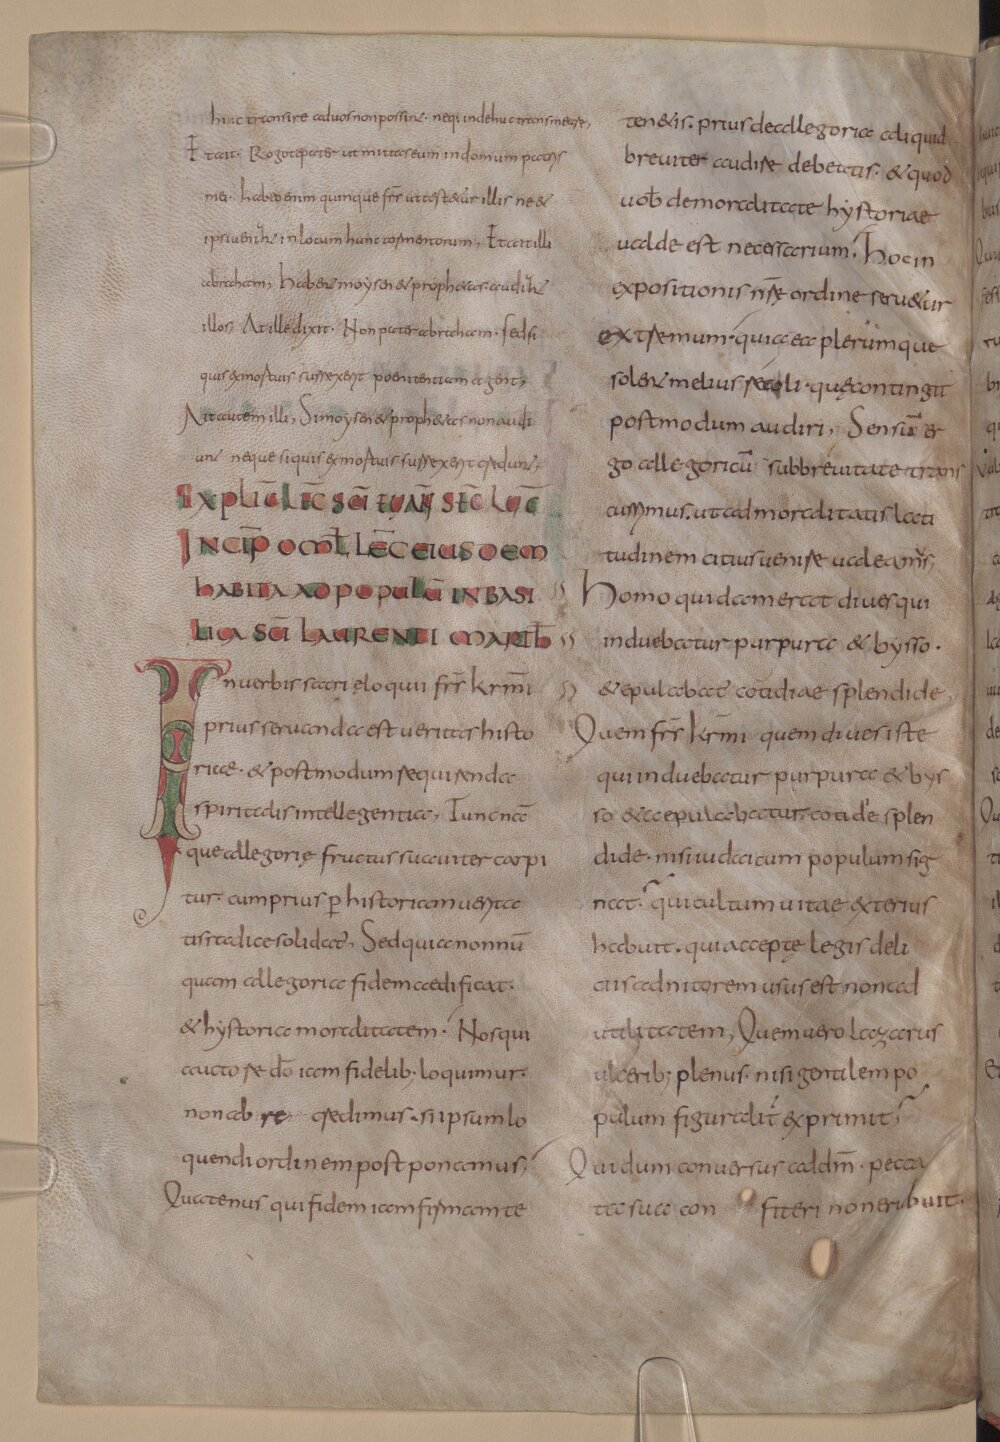 hinc transire ad uos non possint. neq; inde huc transmeare,
Et ait. Rogo te pater ut mittas eum in domum patris
mei. habeo enim quinque frs ut testetur illis ne &
ipsi ueniant in locum hunc tormentorum, Et ait illi
abraham, habent moysen & prophetas. audiant
illos, At ille dixit. Non pater abraham. sed si
quis ex mortuis surrexerit poenitentiam agent,
Ait autem illi, Si moysen & prophetas non audi
unt neque si quis ex mortuis surrexerit credunt,
EXPLIC LEC SCI EUANG SEC LUC
INCIP OMEL LEC EIUSDEM
HABITA AD POPULU IN BASI
LICA SCI LAURENTI MARTIR
In uerbis sacri eloquii frs krmi
prius seruanda est ueritas histo
riae. & postmodum requirenda
spiritalis intellegentia, Tunc na
que allegorię fructus suauiter carpi
tur. cum prius p historiam uerita
tis radice solidat, Sed quia nonnu
quam allegoria fidem aedificat.
& hystoria moralitatem. Nos qui
auctore do iam fidelib; loquimur.
non ab re credimus. si ipsum lo
quendi ordinem postponamus,
Quatenus qui fidem iam firmam te
netis. prius de allegoria aliquid
breuiter audire debeatis. & quod
uob de moralitate hystoriae
ualde est necessarium. hoc in
expositionis nre ordine seruetur
extremum. quia ea plerumque
solent melius recoli. quę contingit
postmodum audiri, Sensu er
go allegoricu sub breuitate trans
currimus. ut ad moralitatis lati
tudinem citius uenire ualeamus,
Homo quidam erat diues qui
induebatur purpura & bysso.
& epulabat cotidiae splendide,
Quem frs krmi quem diues iste
qui induebatur purpura & bys
so & epulabatur. cotide splen
dide. nisi iudaicum populum sig
nat. qui cultum uitae exterius
habuit. qui acceptę legis deli
ciis ad nitorem usus est non ad
utilitatem, Quem uero lazarus
ulcerib; plenus. nisi gentilem po
pulum figuralit exprimit,
Qui dum conuersus ad dm. pecca
ta sua con fiteri non erubuit.